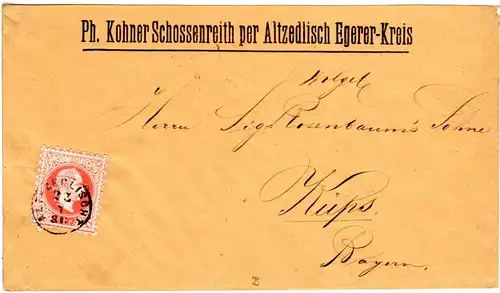 Ph. Kohner Schossenreith per Altzedlisch Egerer-Kreis
Wolgel
Herrn Sig. Rosenbaum's Söhne
Küps
Bayern.
ALT ZEDLISCH
B